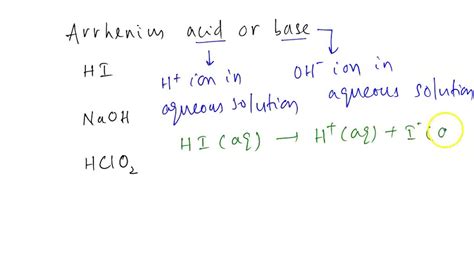 Arrhenius acid or base
HI
H⁺ ion in
aqueous solution
OH⁻ ion in
aqueous solution
NaOH
HI (aq) → H⁺ (aq) + I⁻ (a
HClO₂